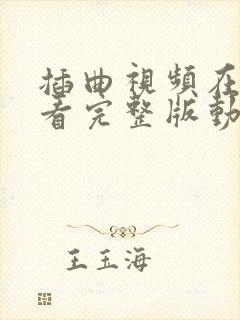 插曲視頻在
看完整版動
王玉海